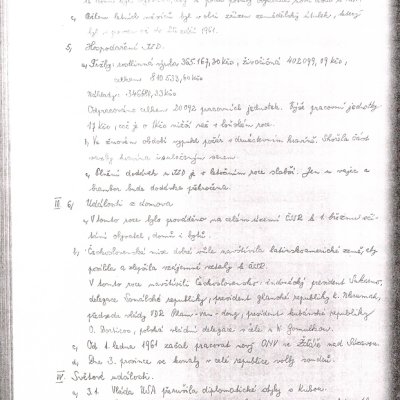 c) Během letních měsíců byl v obci zřízen zemědělský útulek, který
byl v provozu do 1961.
5) Hospodaření v JZD.
a) Tržby: rostlinná výroba 365.167,30 Kčs, živočišná 402.099,19 Kčs,
celkem 810.532,60 Kčs
náklady:
Odpracováno celkem 20.092 pracovních jednotek. Výše pracovní jednotky
17 Kčs, což je o 1 Kčs nižší než v loňském roce.
b) Ve žňovém období vypukl požár v družstevním kravíně. Shořela část
kravína
c) Plnění dodávek v JZD je v letošním roce slabší. Jen u vajec a
brambor byla dodávka překročena.
III 6) Události z domova
a) V tomto roce bylo prováděno na celém území ČSSR k 1. březnu sčí-
tání obyvatel, domů i bytů.
b) Československá mise dobré vůle navštívila latinskoamerické země, aby
posílila a zlepšila vzájemné vztahy k ČSSR.
V tomto roce navštívili Československo: indonéský president Sukarno,
delegace Somálské republiky, president ghanské republiky K. Nkrumah,
předseda vlády VDR Pham-van-dong, president kubánské republiky
O. Dorticos, polská vládní delegace v čele s W. Gomulkou.
c) Od 1. ledna 1961 začal pracovat nový ONV ve Žďáře nad Sázavou.
d) Dne 3. prosince se konaly v celé republice volby soudců.
IV. Světové události.
a) 3.1. Vláda USA přerušila diplomatické styky s Kubou.